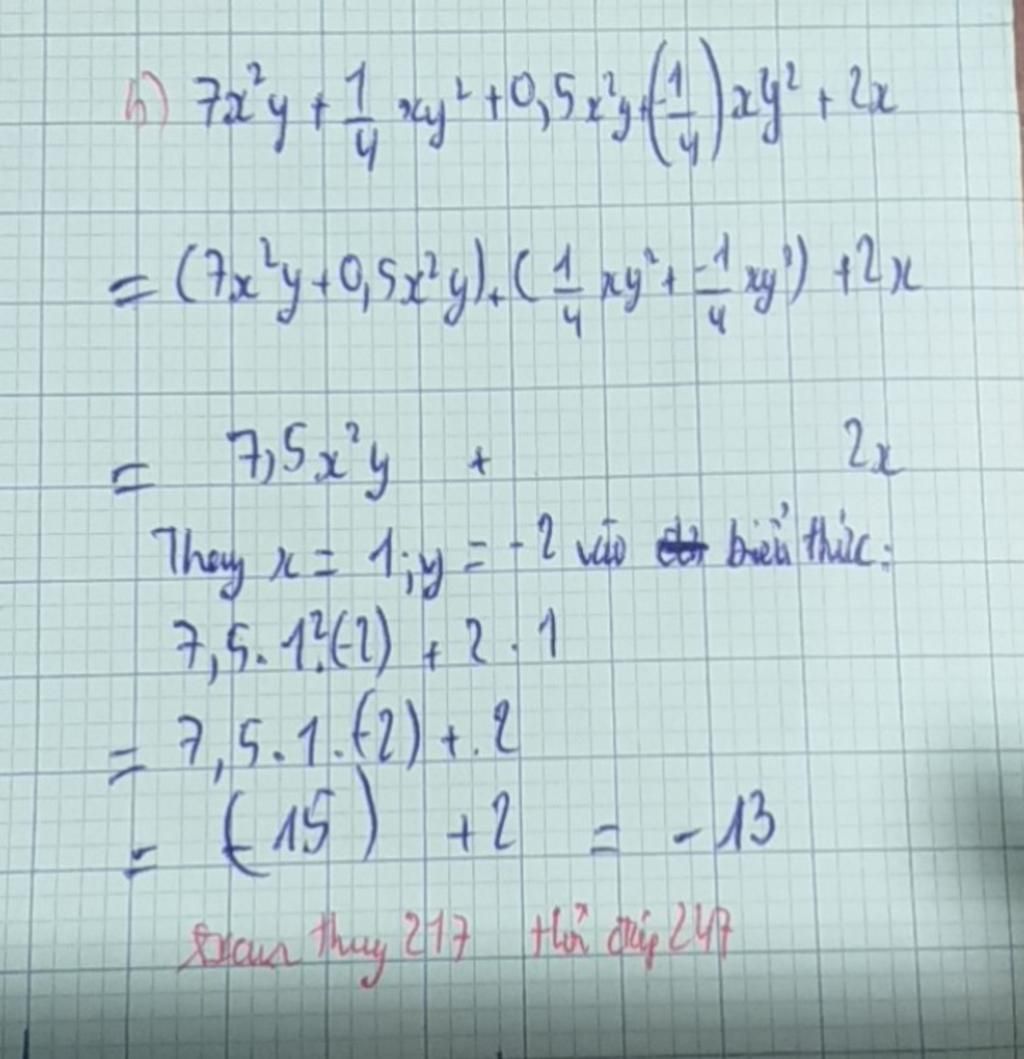 b) 7x²y + 1/4 xy² + 0,5x²y + (-1/4) xy² + 2x
= (7x²y + 0,5x²y) + (1/4 xy² + -1/4 xy²) + 2x
= 7,5x²y + 2x
Thay x = 1; y = -2 vào biểu thức:
7,5 . 1² . (-2) + 2 . 1
= 7,5 . 1 . (-2) + . 2
= (-15) + 2 = -13
thuy 217 hỏi đáp 247